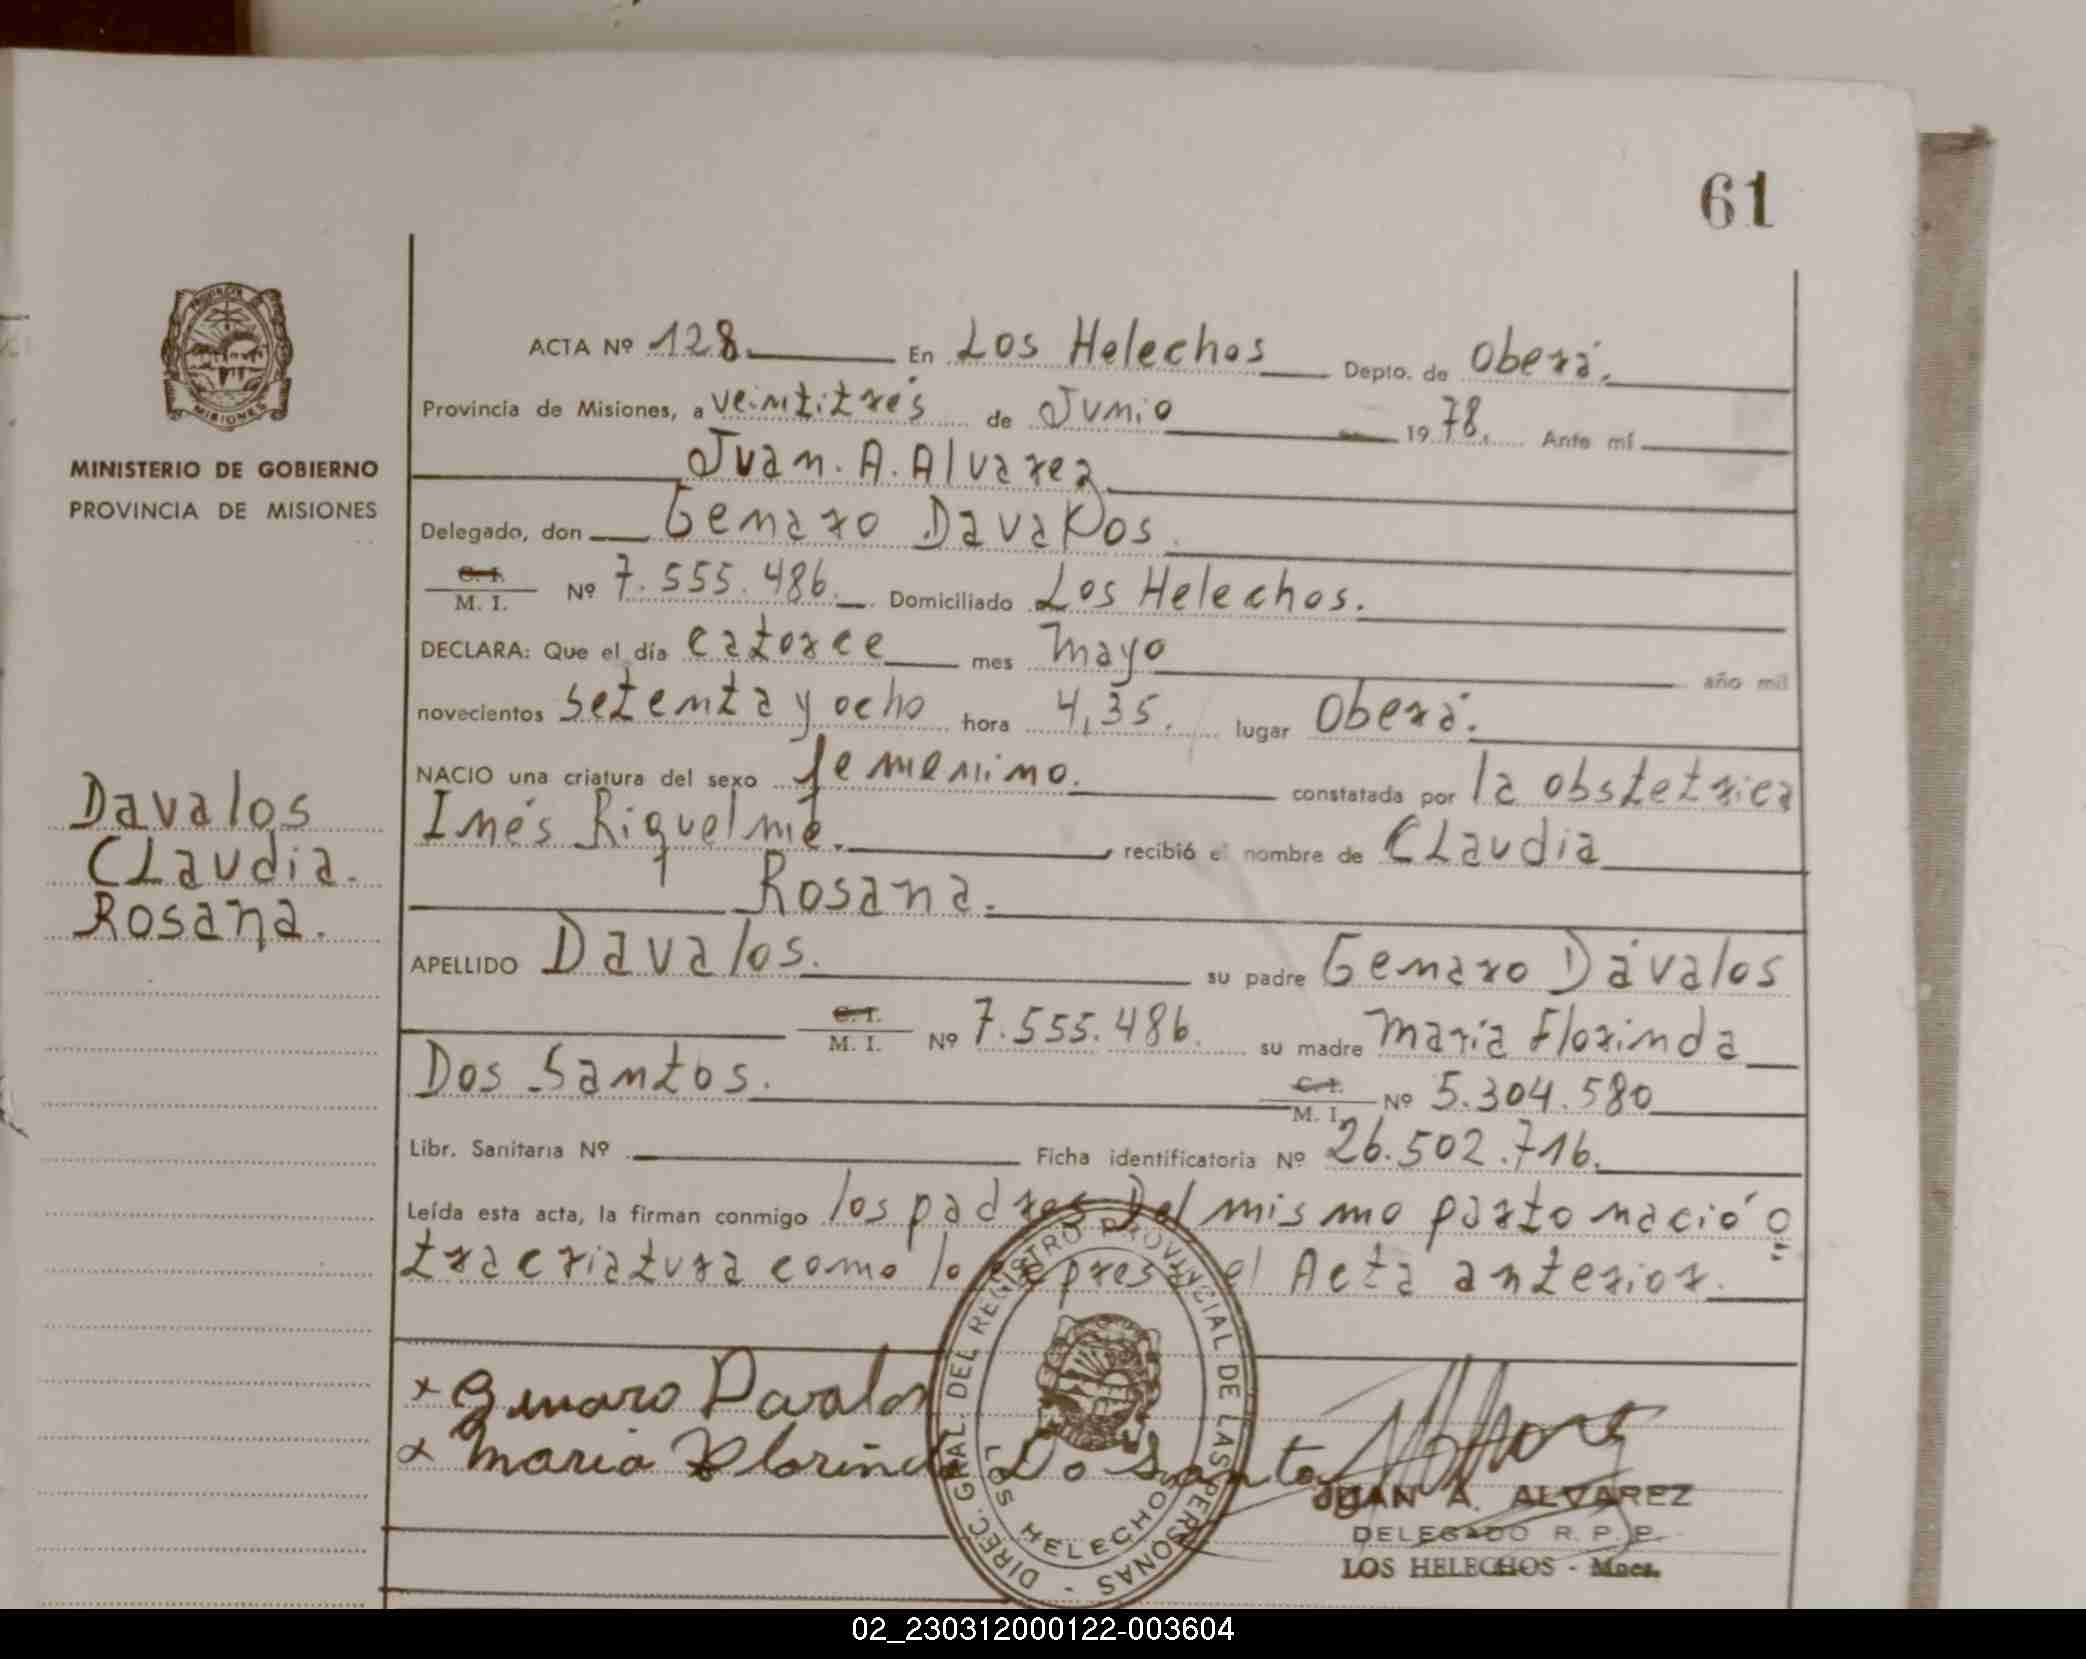 61
PROVINCIA DE
MISIONES
MINISTERIO DE GOBIERNO
PROVINCIA DE MISIONES
Davalos
CLaudia.
Rosana.
ACTA Nº 128. En Los Helechos Depto. de Oberá.
Provincia de Misiones, a veintitrés de Junio 1978. Ante mí
Juan. A. Alvarez
Delegado, don Genaro Davalos.
C. I.
M. I. Nº 7.555.486. Domiciliado Los Helechos.
DECLARA: Que el día catorce mes mayo año mil
novecientos setenta y ocho hora 4,35. lugar Oberá.
NACIO una criatura del sexo femenino. constatada por la obstetrica
Inés Riquelme. recibió el nombre de CLaudia
Rosana.
APELLIDO Davalos. su padre Genaro Dávalos
C. I.
M. I. Nº 7.555.486. su madre María Florinda
Dos Santos. C. I.
M. I. Nº 5.304.580
Libr. Sanitaria Nº Ficha identificatoria Nº 26.502.716.
Leída esta acta, la firman conmigo los padres Del mismo parto nació o
tra criatura como lo expresa el Acta anterior.
x Genaro Davalos
x Maria Florinda Do Santo
DIREC. GRAL. DEL REGISTRO PROVINCIAL DE LAS PERSONAS -
LOS HELECHOS
JUAN A. ALVAREZ
DELEGADO R. P. P.
LOS HELECHOS - Mnes.
02_230312000122-003604